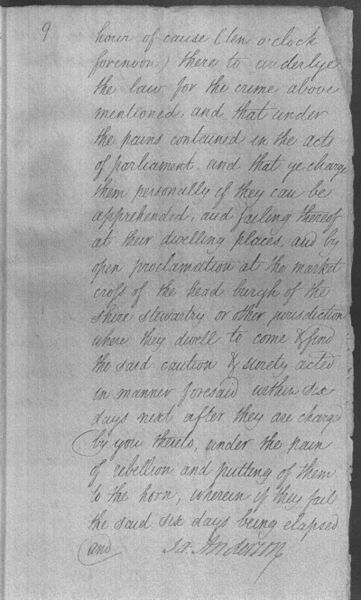 9
hour of cause (ten o'clock
forenoon) there to underlye
the law for the crime above
mentioned, and that under
the pains contained in the acts
of parliament. and that ye charge
them personally if they can be
apprehended, and failing thereof
at their dwelling places, and by
open proclamation at the market
cross of the head burgh of the
shire stewartry or other jurisdiction
where they dwell to come & find
the said caution & surety acted
in manner foresaid within six
days next after they are charge
by you thereto, under the pain
of rebellion and putting of them
to the horn, wherein if they fail
the said six days being elapsed
and Anderson